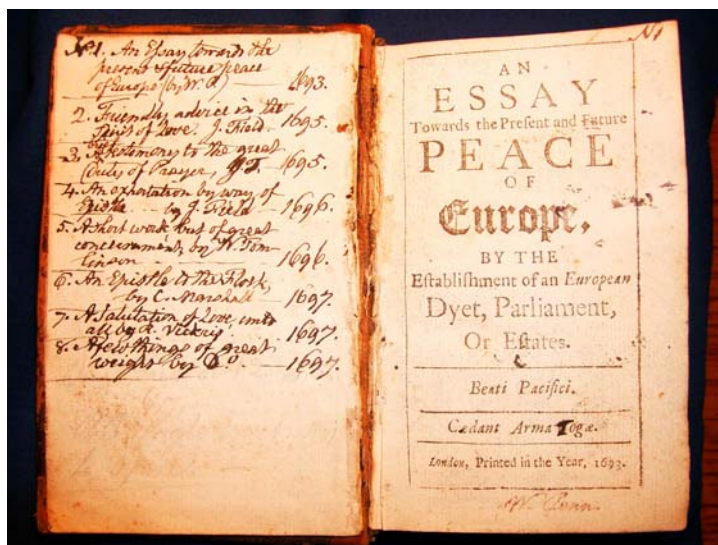 No 1. An Essay towards the
present & future peace
of Europe (by W. P) — 1693.
2. Friendly advice in the
Spirit of Love. J. Field - 1695.
3. A testimony to the great
Duty of Prayer, J.F. - 1695.
4. An exhortation by way of
Epistle - - by J. Field - 1696.
5. A short work, but of great
concernment, by W. Tom-
linson - 1696.
6. An Epistle to the Flock,
by C. Marshall - 1697.
7. A Salutation of Love, unto
all by R. Vickris. 1697.
8. A few things of great
weight by Do - 1697.
No 1
AN
ESSAY
Towards the Preſent and Future
PEACE
OF
Europe,
BY THE
Eſtabliſhment of an European
Dyet, Parliament,
Or Eſtates.
Beati Pacifici.
Cædant Arma Togæ.
London, Printed in the Year, 1693.
W. Penn.